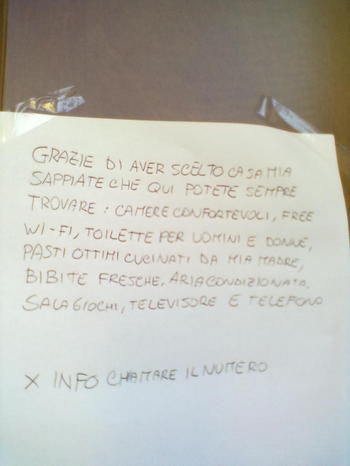 GRAZIE DI AVER SCELTO CASA MIA
SAPPIATE CHE QUI POTETE SEMPRE
TROVARE: CAMERE CONFORTEVOLI, FREE
WI-FI, TOILETTE PER UOMINI E DONNE,
PASTI OTTIMI CUCINATI DA MIA MADRE,
BIBITE FRESCHE, ARIA CONDIZIONATA,
SALA GIOCHI, TELEVISORE E TELEFONO
X INFO CHIAMARE IL NUMERO